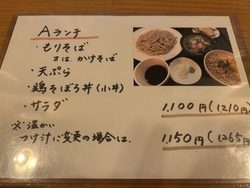 Aランチ
・もりそば
又は、かけそば
・天ぷら
・鶏そぼろ丼(小丼)
・サラダ
1,100円(1210円)
※温かい
つけ汁に変更の場合は、
1,150円(1265円